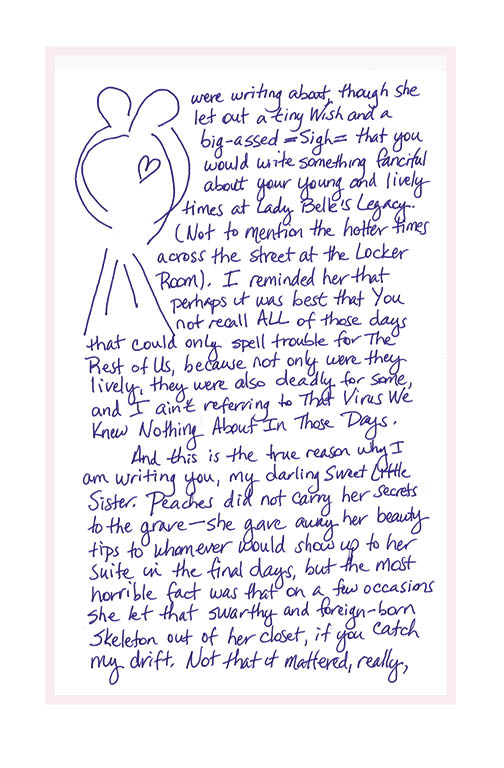 were writing about, though she
let out a tiny Wish and a
big-assed =Sigh= that you
would write something fanciful
about your young and lively
times at Lady Belle's Legacy.
(Not to mention the hotter times
across the street at the Locker
Room). I reminded her that
perhaps it was best that You
not recall ALL of those days
that could only spell trouble for The
Rest of Us, because not only were they
lively, they were also deadly for some,
and I ain't referring to That Virus We
Knew Nothing About In Those Days.
And this is the true reason why I
am writing you, my darling Sweet Little
Sister. Peaches did not carry her secrets
to the grave—she gave away her beauty
tips to whomever would show up to her
suite in the final days, but the most
horrible fact was that on a few occasions
she let that swarthy and foreign-born
skeleton out of her closet, if you catch
my drift. Not that it mattered, really,